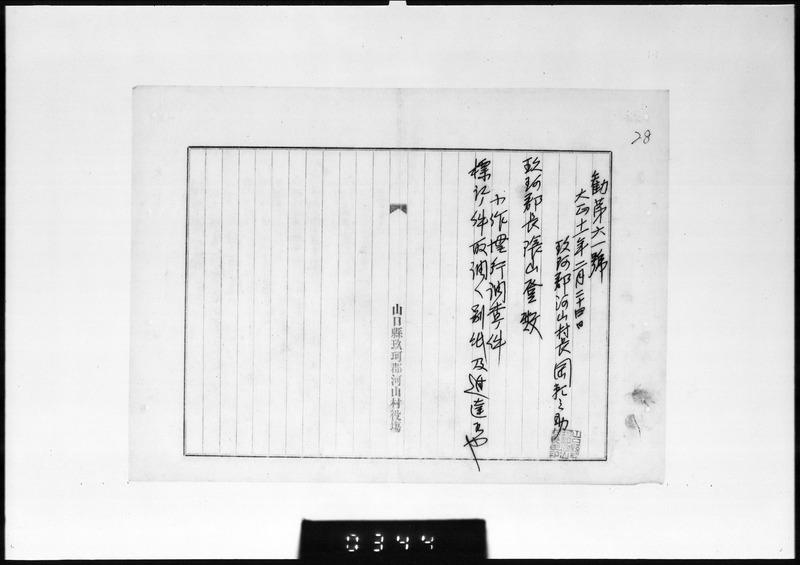 28
勧第六一號
大正十一年二月二十四日
玖珂郡河山村長 岡
玖珂郡長 陰山登 殿
小作慣行調査ノ件
標記ノ件取調ノ別紙及進達候也
山口縣玖珂郡河山村役場
0344